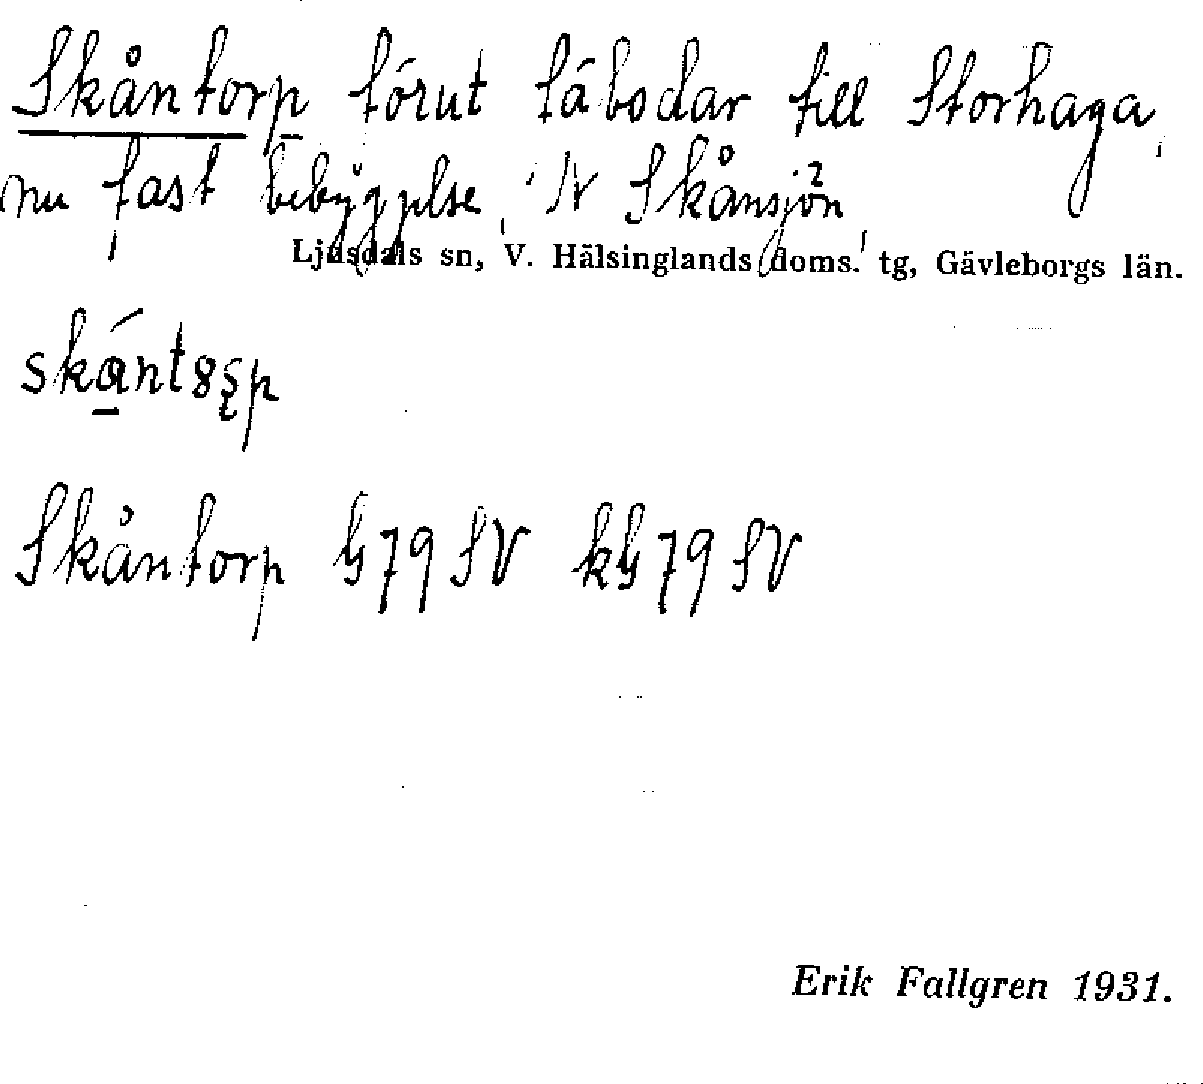 Skåntorp förut fäbodar till Storhaga,
nu fast bebyggelse, N Skånsjön,
Ljusdals sn, V. Hälsinglands doms. tg, Gävleborgs län.
Skåntorp G79SV kG79SV
Erik Fallgren 1931.